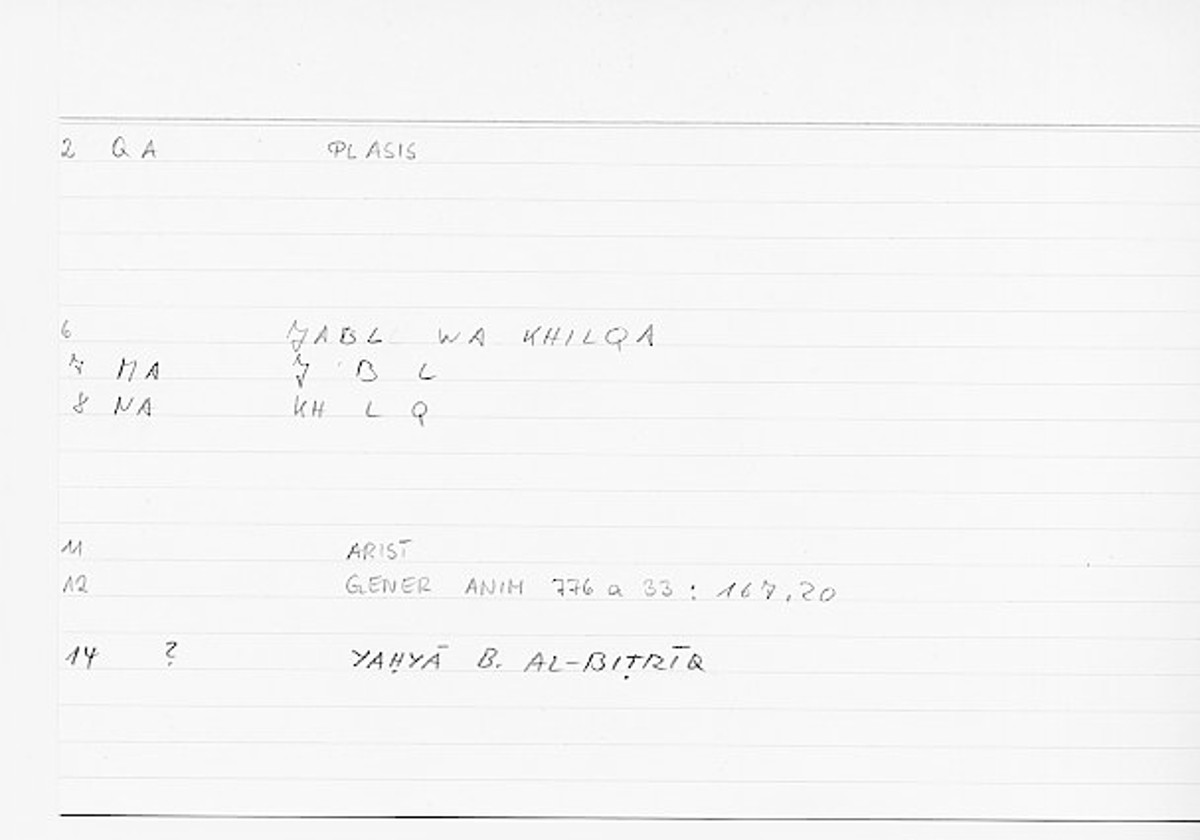 2 QA PLASIS
6 JABL WA KHILQA
7 MA J B L
8 NA KH L Q
11 ARIST
12 GENER ANIM 776 a 33 : 167,20
14 ? YAḤYĀ B. AL-BIṬRĪQ